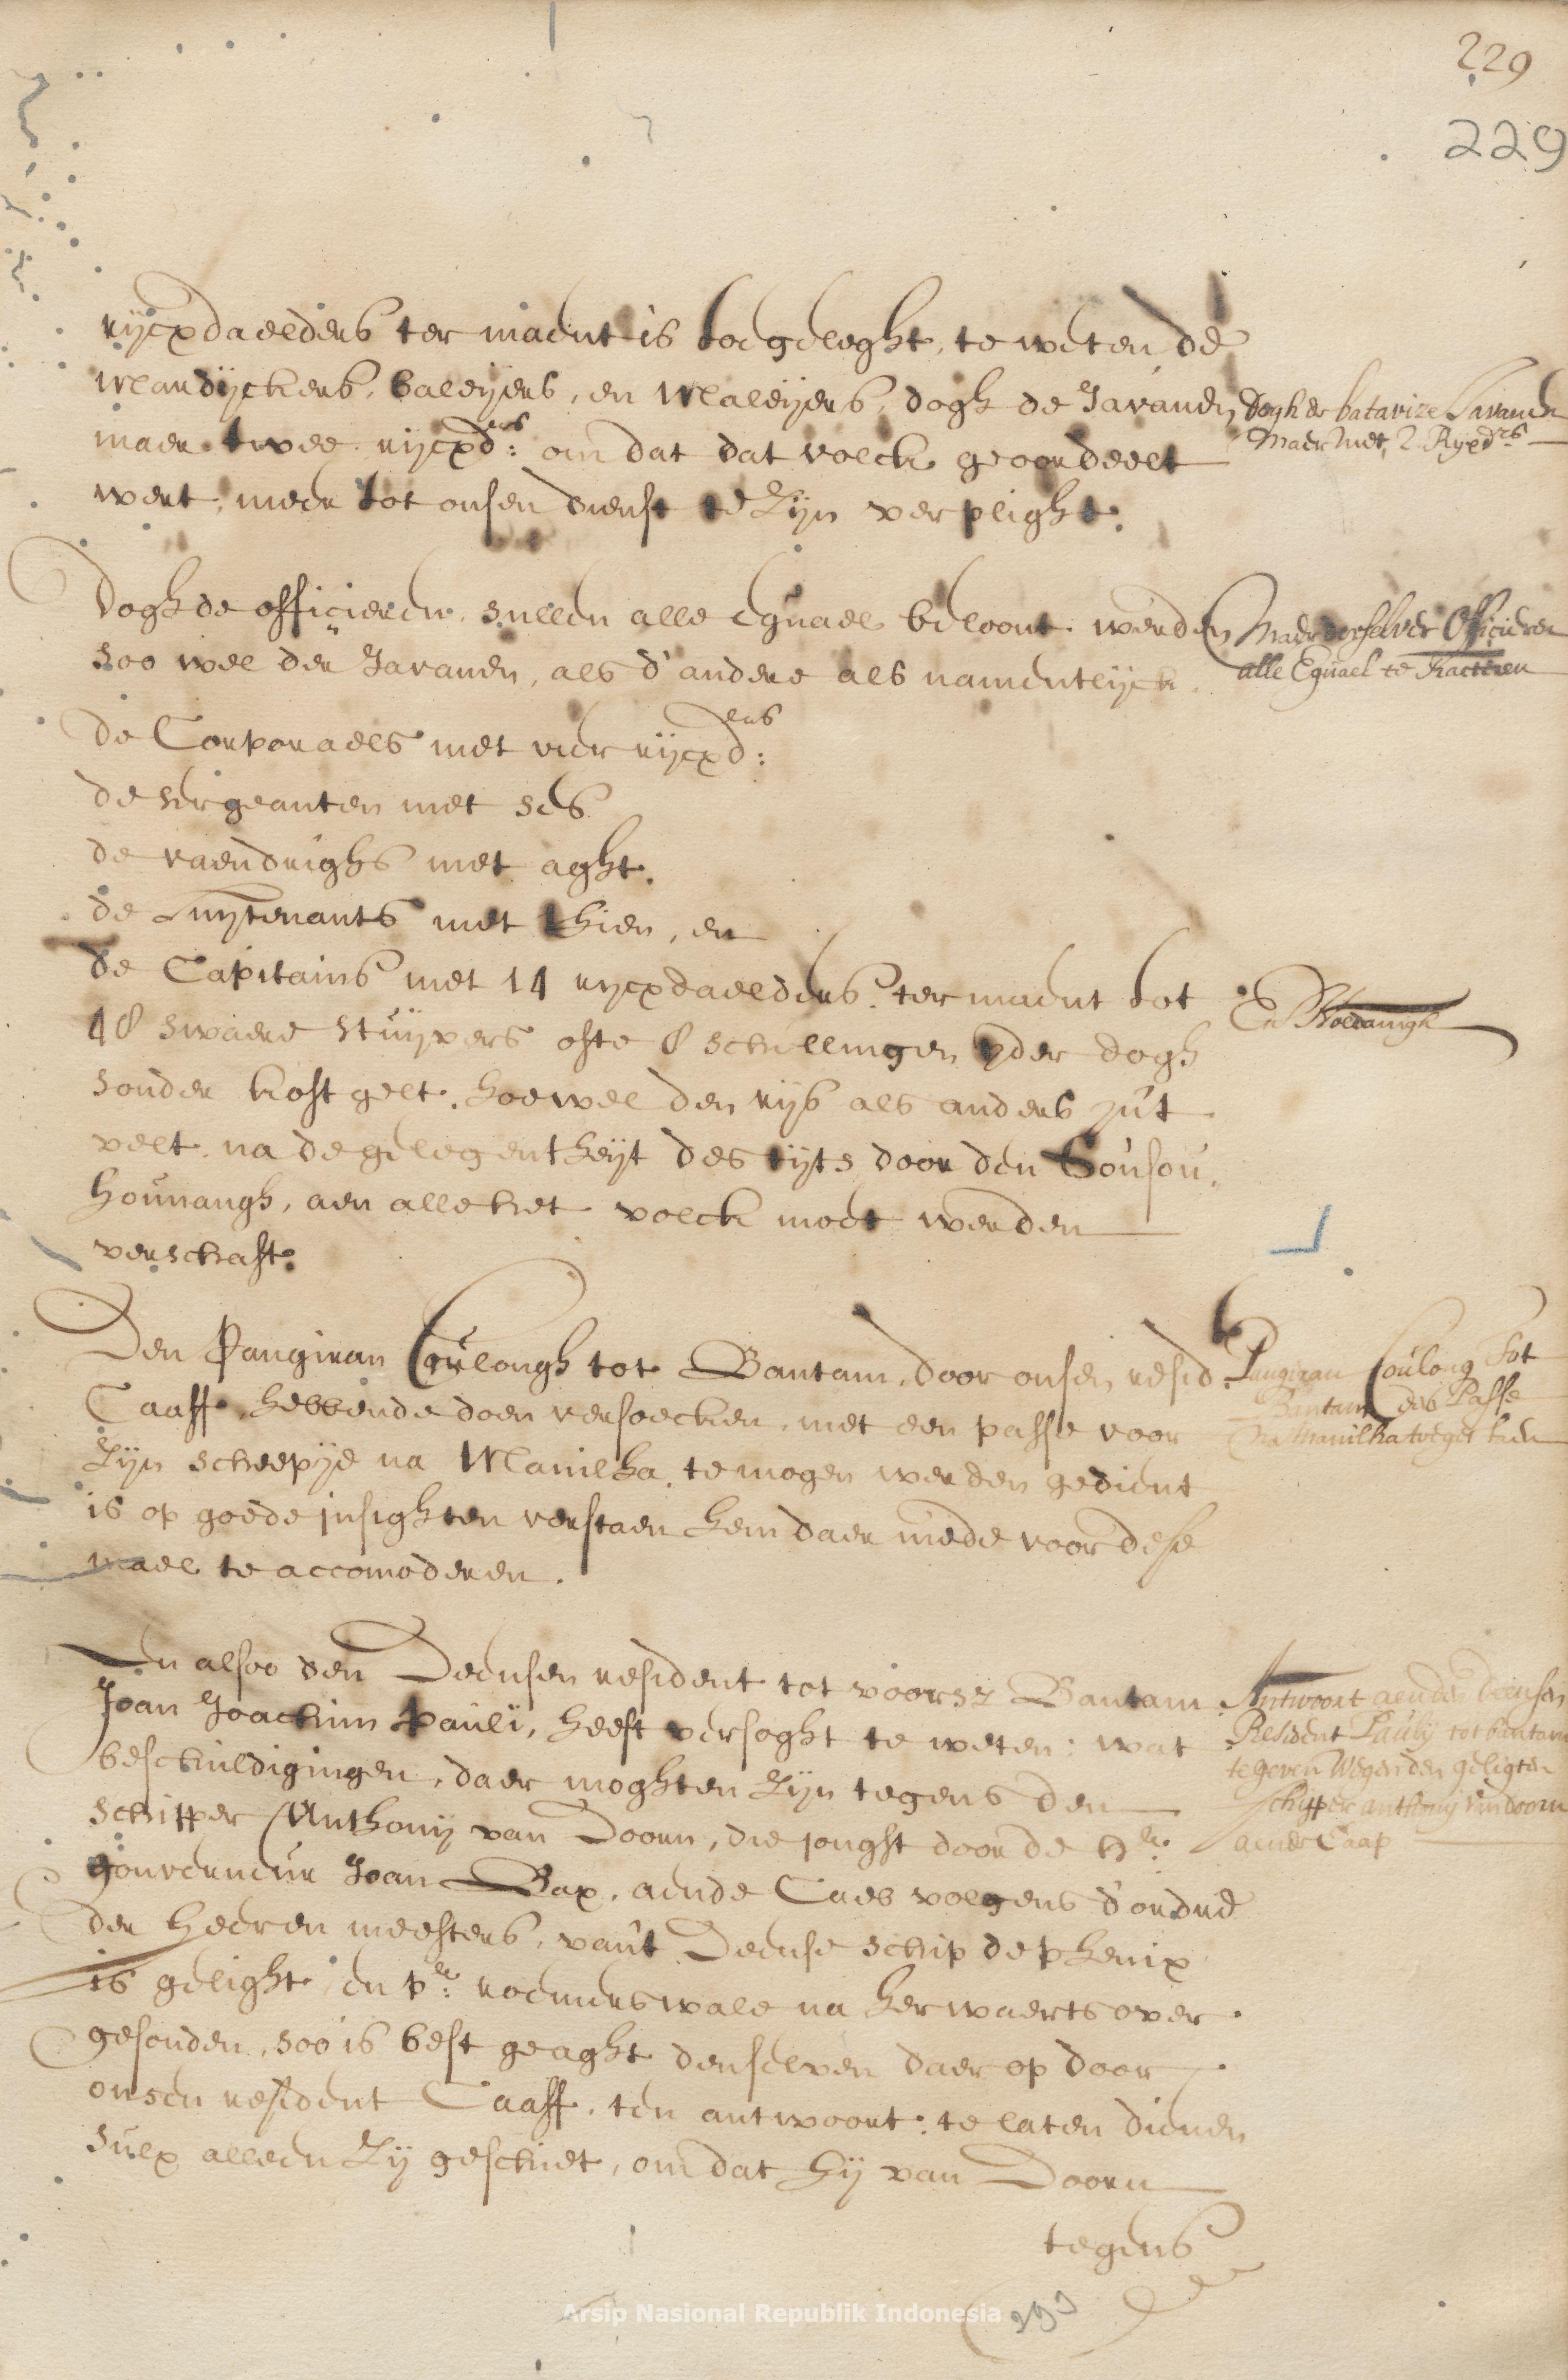 229
229
rijcxdaelders ter maent is toegeleght, te weten de
Mandijckers, Baleijers, en Maleijers, dogh de Javanen
maer twee rijcxd:ers omdat dat volck geoordeelt
wert, meer tot onsen dienst te zijn verplight.
dogh de batavize Javanen
maer met 2 Rijxd:rs
dogh de officieren sullen alle equael beloont werden
soo wel der Javanen, als d'andere als namentlijck
maer derselver Officieren
alle Equael te Tracteren
de Corporaels met vier rijcxd:ers
de sergeanten met ses
de vaendrighs met aght.
de Luijtenants met thien, en
de Capitains met 14 rijcxdaelders ter maent tot
48 swaere stuijvers ofte 8 schellingen ijder dogh
sonder kostgelt, hoewel den rijs als anders in 't
velt, na de gelegentheijt des tijts door den Sousou,
hounangh, aen alle het volck moet werden
verschaft.
Den Pangiran Coulongh tot Bantam, door onsen resid:
Caaff, hebbende doen versoecken, met een passe voor
zijn scheepje na Manilha, te mogen werden gedient
is op goede insighten verstaen hem daer mede voor dese
mael te accomoderen.
Pangiran Coulong tot
Bantam een Passe
na Manilha toegestaen
En alsoo den Deensen resident tot voorsz Bantam
Joan Joachim Pauli, heeft versoght te weten: wat
beschuldigingen, daer moghten zijn tegens den
schipper Anthonij van Doorn, die jonght door de Hr.
gouverneur Joan Bax, aende Caeb volgens d'ordre
der heeren meesters, van't Deense schip de phenix
is gelight en pr: roemerswale na herwaerts over
gesonden, soo is best geaght denselven daer op door
onsen resident Caaff, ten antwoort te laten dienen
sulx alleen zij geschiet, omdat hij van Doorn
Antwoort aen den deensen
Resident Paulij tot bantam
te geven Wegens den geligten
schipper anthonij van doorn
aende Caap
tegens
Arsip Nasional Republik Indonesia